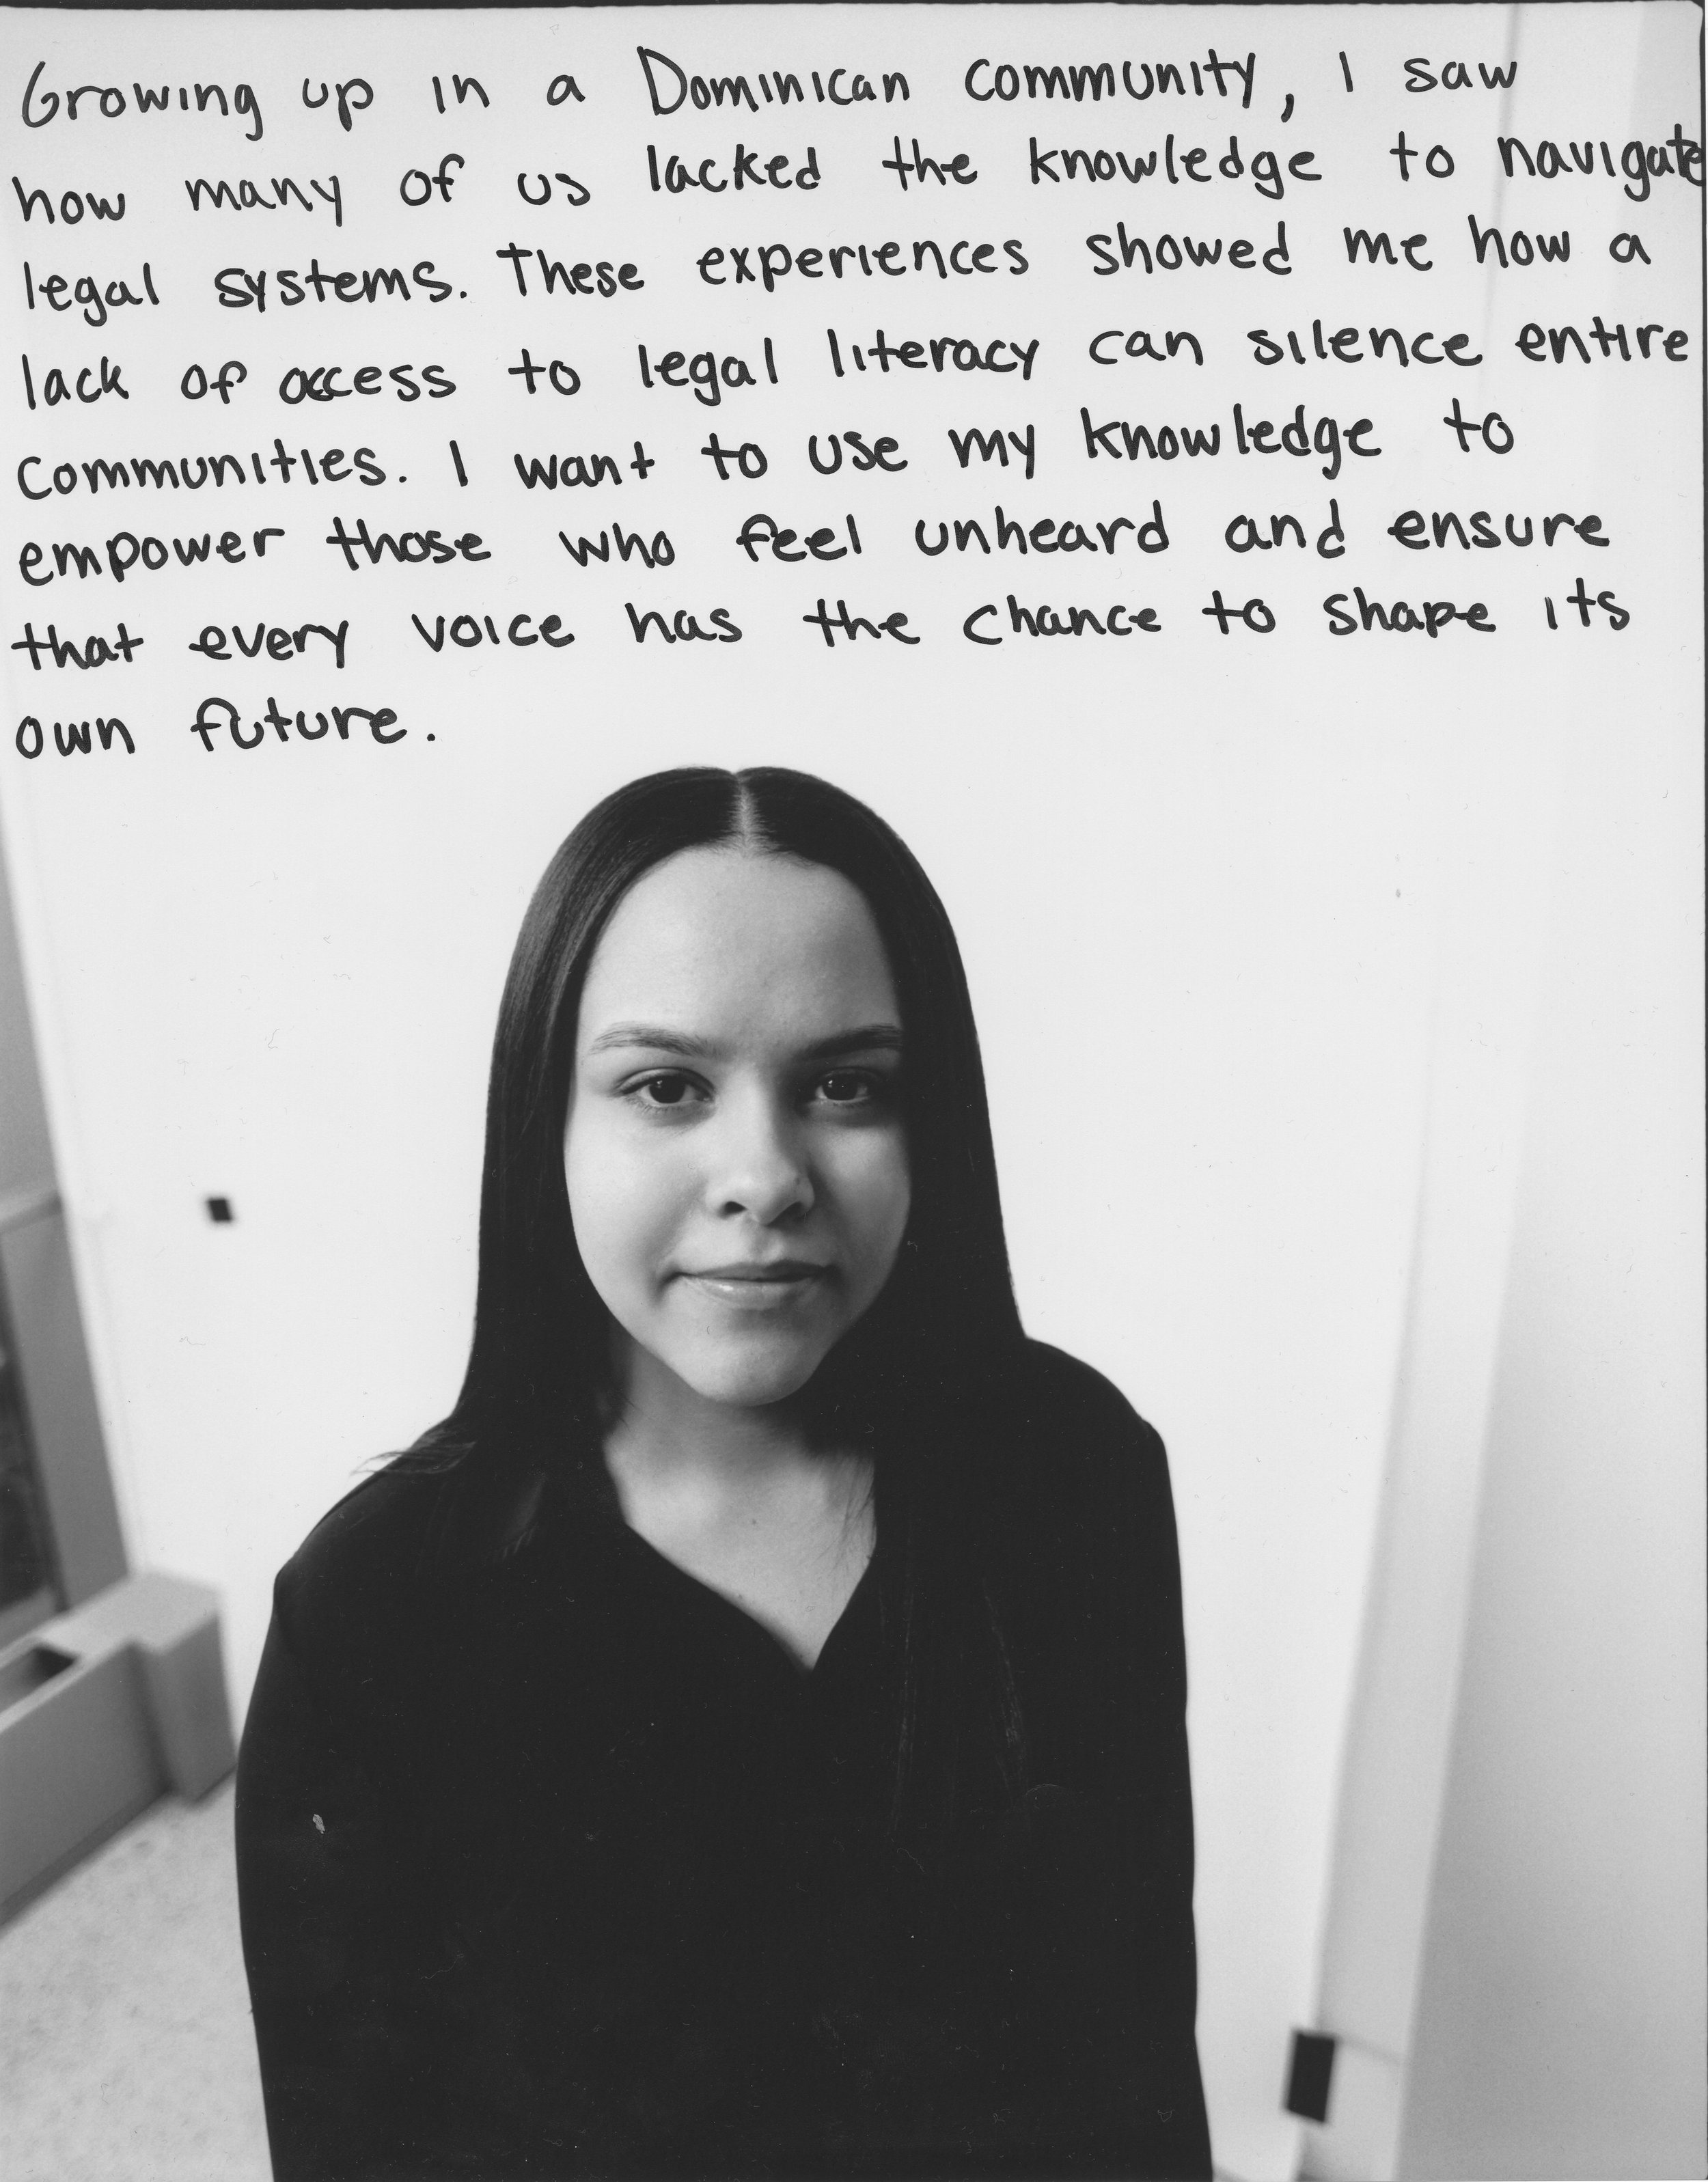 Growing up in a Dominican community, I saw
how many of us lacked the knowledge to navigate
legal systems. These experiences showed me how a
lack of access to legal literacy can silence entire
communities. I want to use my knowledge to
empower those who feel unheard and ensure
that every voice has the chance to shape its
own future.